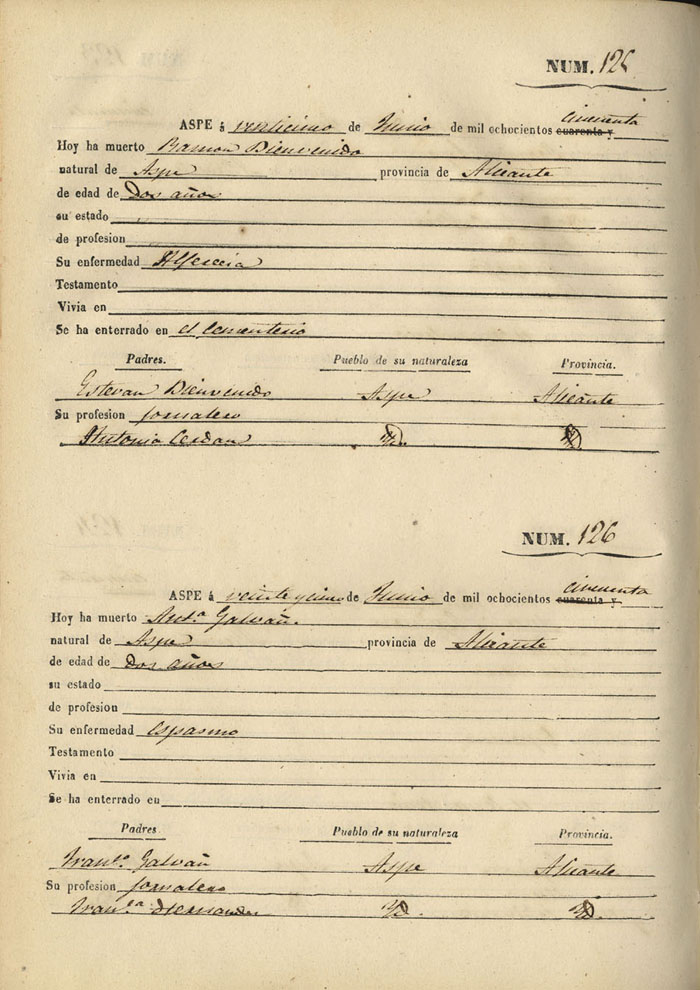 NUM. 125
cincuenta
ASPE á venticinco de Junio de mil ochocientos cuarenta y
Hoy ha muerto Ramon Bienvenido
natural de Aspe provincia de Alicante
de edad de Dos años
su estado
de profesion
Su enfermedad Alferecia
Testamento
Vivia en
Se ha enterrado en el Cementerio
Padres. Pueblo de su naturaleza Provincia.
Estevan Bienvenido Aspe Alicante
Su profesion jornalero
Antonia Cerdan Yd. Yd.
NUM. 126
cincuenta
ASPE á veinte y cinco de Junio de mil ochocientos cuarenta y
Hoy ha muerto Ant.a Galvañ.
natural de Aspe provincia de Alicante
de edad de dos años
su estado
de profesion
Su enfermedad espasmo
Testamento
Vivia en
Se ha enterrado en
Padres Pueblo de su naturaleza Provincia.
Fran.co Galvañ Aspe Alicante
Su profesion Jornalero
Fran.ca Hernandez Yd. Yd.